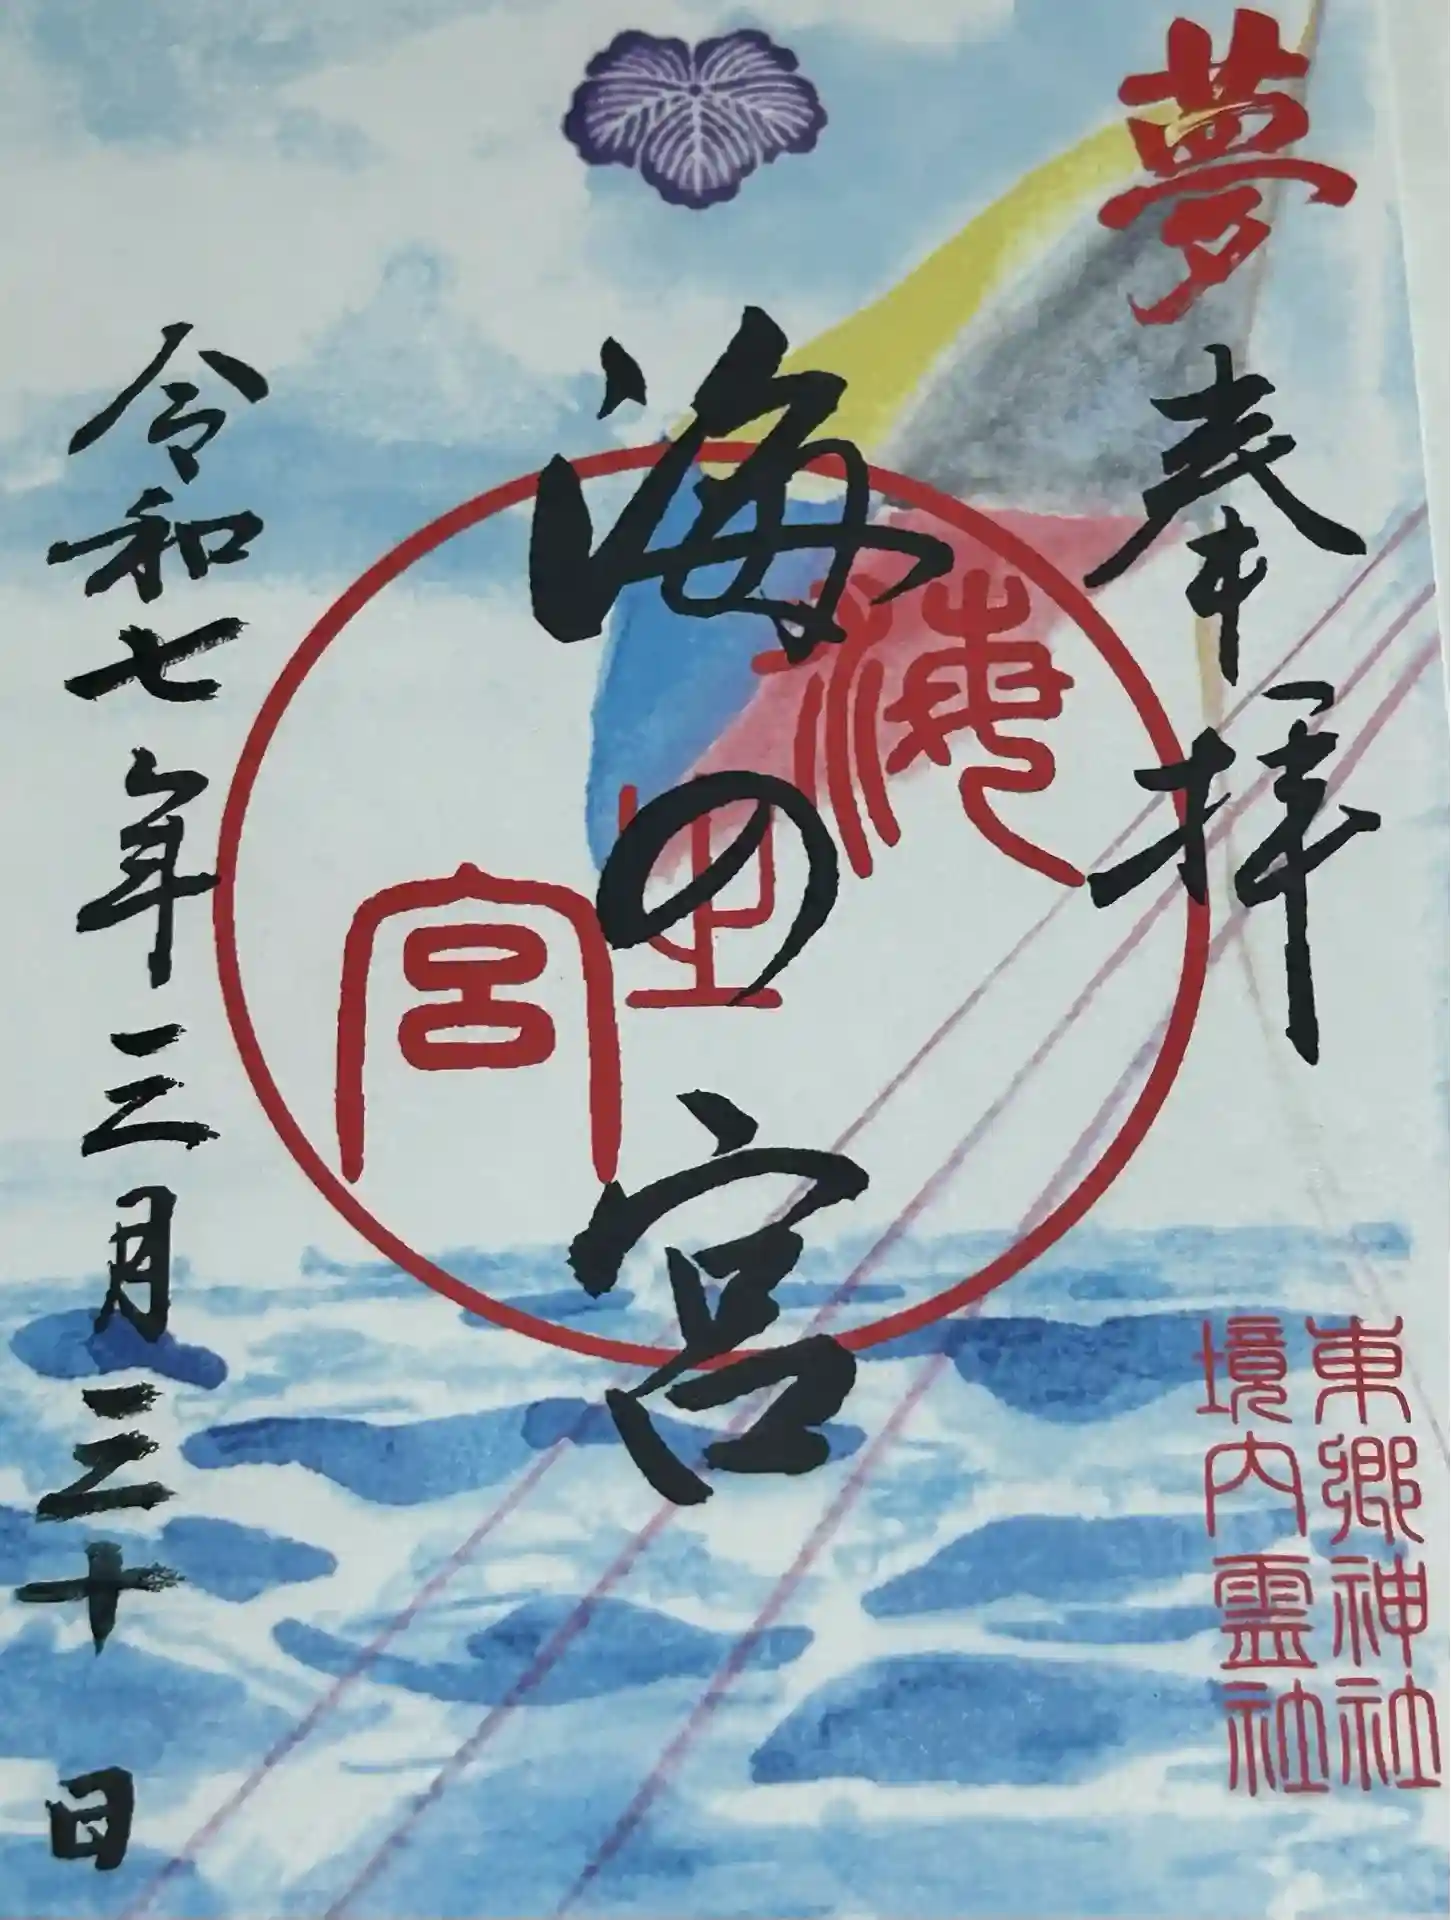 夢
奉拝
東郷神社
境内霊社
海の宮
海
之
宮
令和七年三月三十日